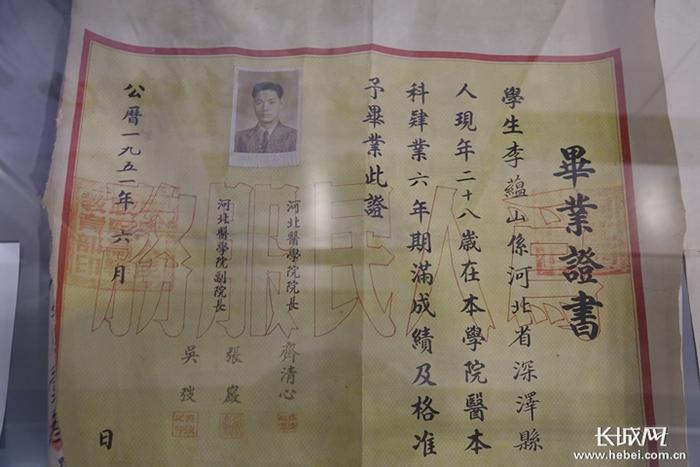 畢業證書
學生李蘊山係河北省深澤縣
人現年二十八歲在本學院醫本
科肄業六年期滿成績及格准
予畢業此證
河北醫學院院長 齊清心
河北醫學院副院長 張巖
吳弢
公曆一九五一年六月 日
爲人民服務
长城网
www.hebei.com.cn